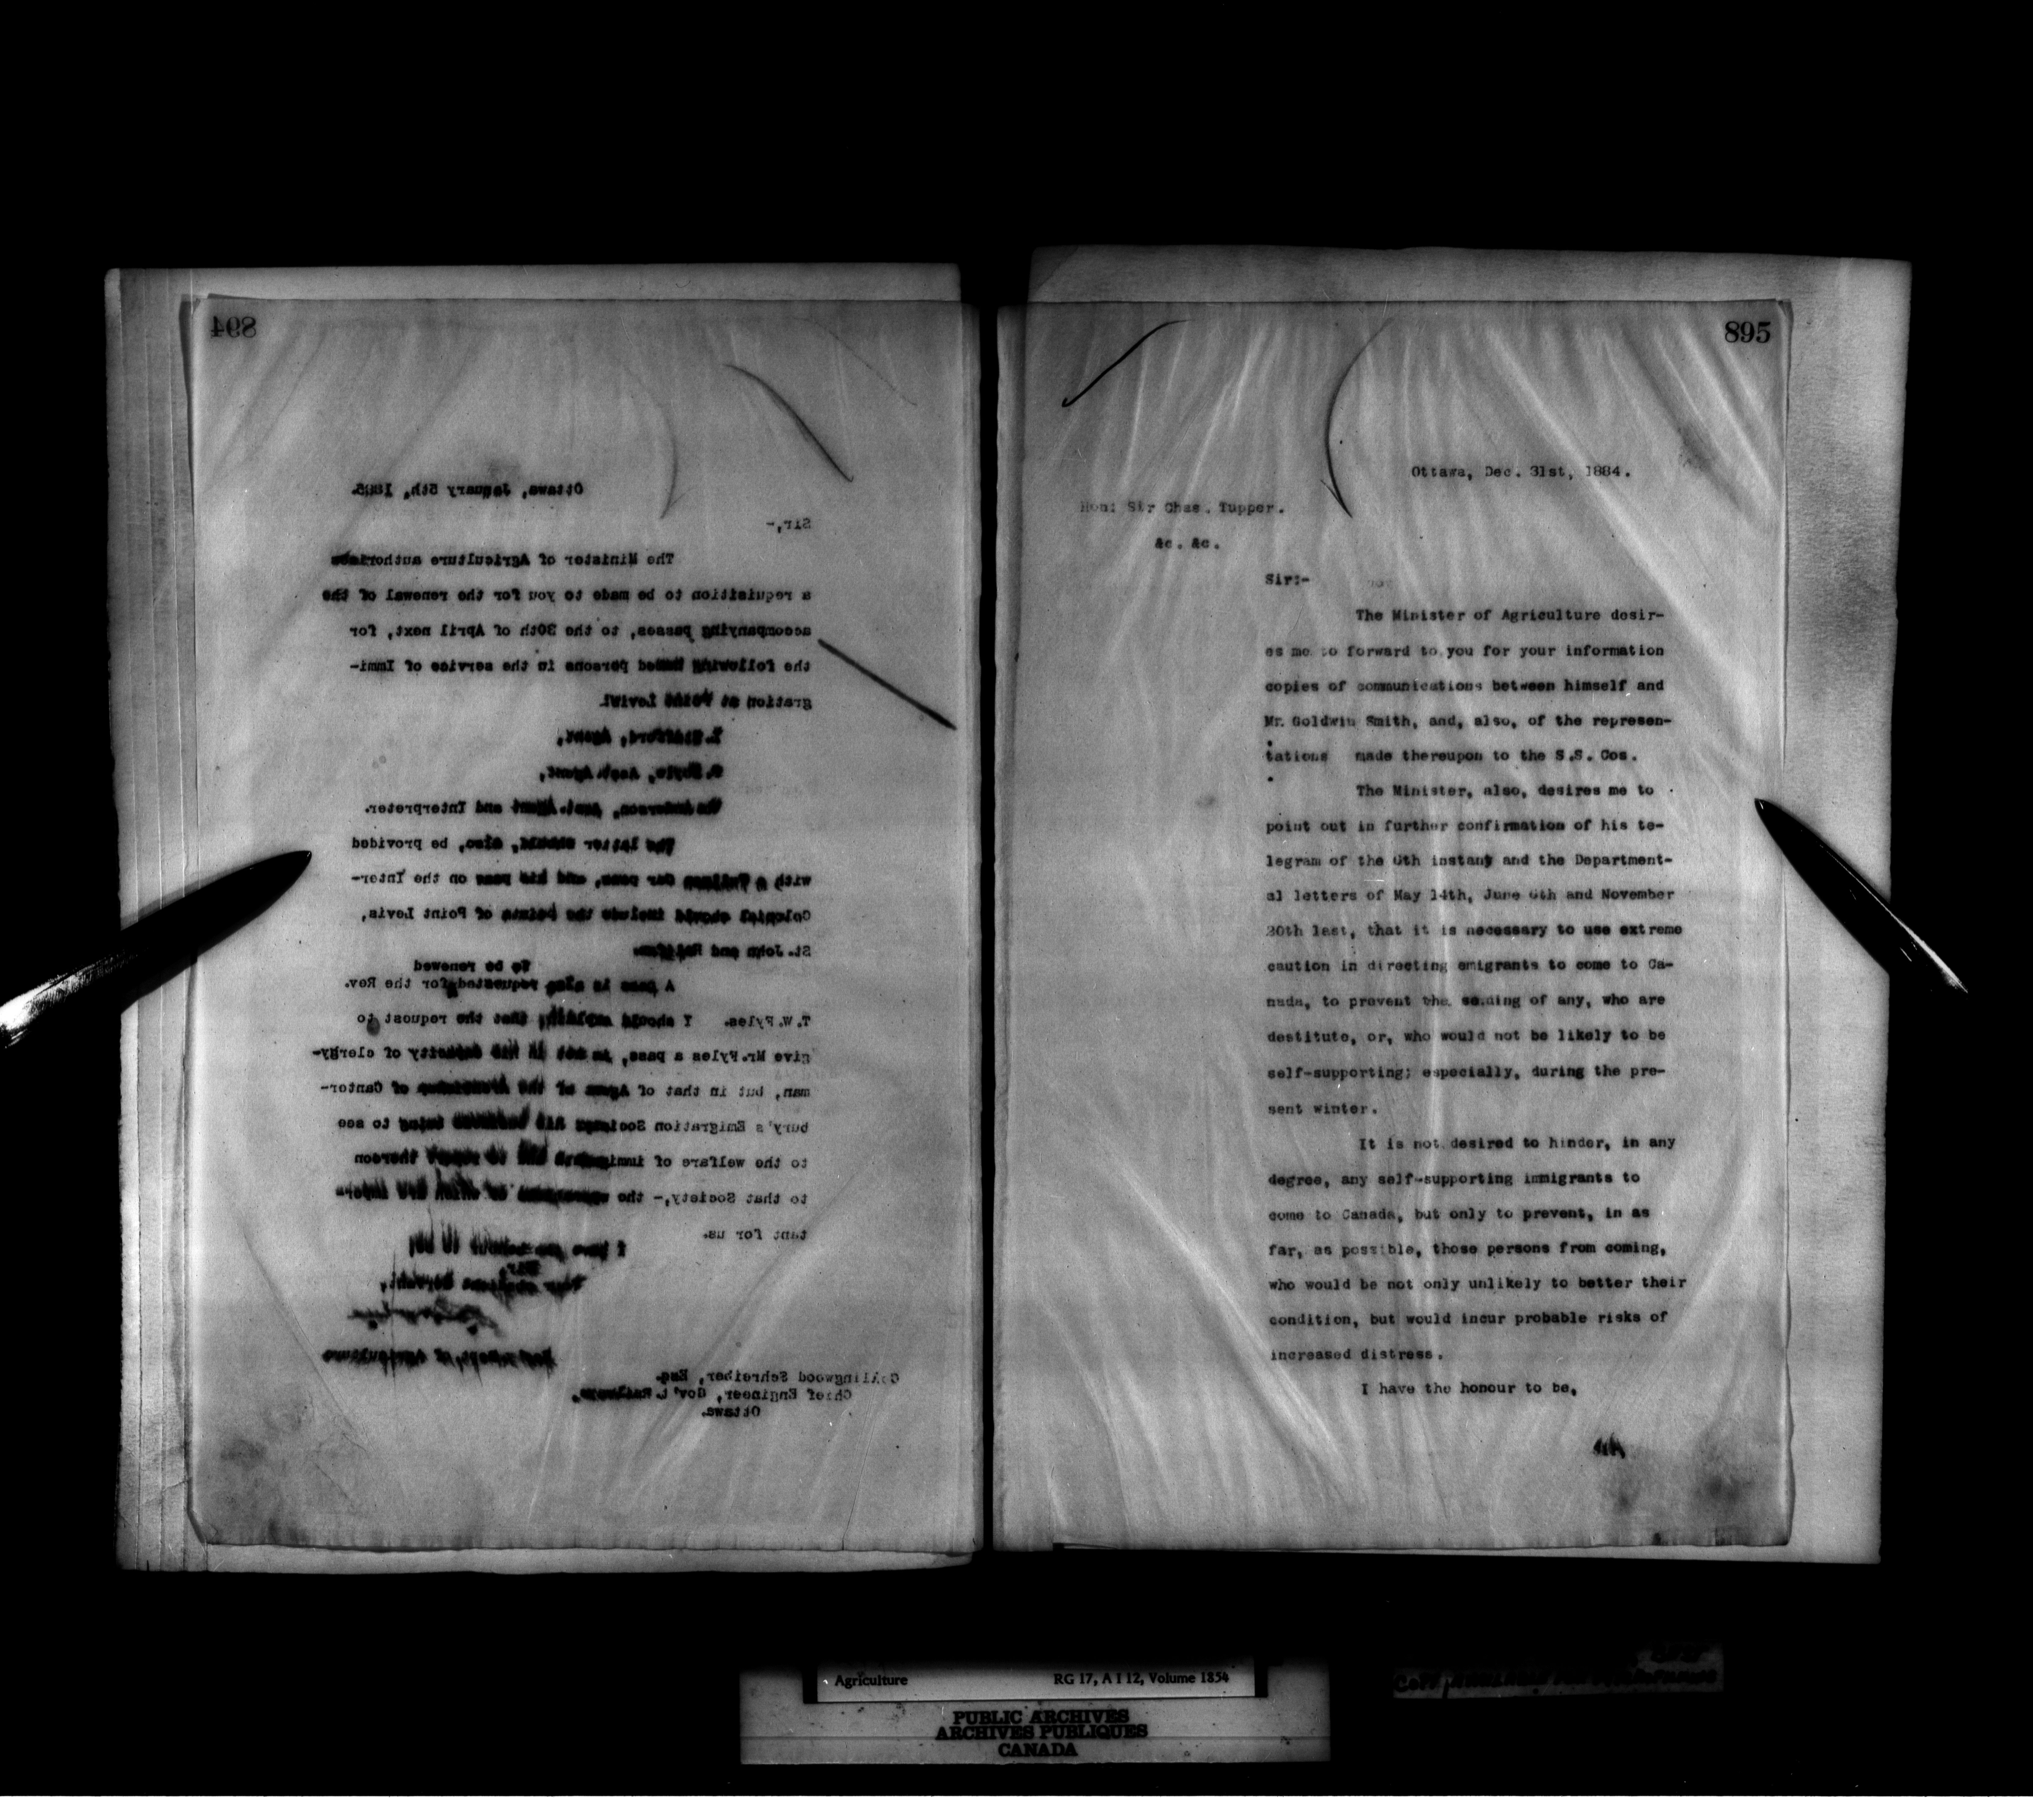 894
Ottawa, January 5th, 1885.
Sir,-
The Minister of Agriculture authorises
a requisition to be made to you for the renewal of the
accompanying passes, to the 30th of April next, for
the following named persons in the service of Immi-
gration at Point Levis.
Agent,
Asst. Agent,
Anderson, Asst. Agent and Interpreter.
The latter should, also, be provided
with a Pullman Car pass, and his pass on the Inter-
Colonial should include the points of Point Levis,
St. John and Halifax.
To be renewed
A pass is also requested for the Rev.
T.W. Fyles. I should explain, that the request to
give Mr. Fyles a pass, is not in his capacity of clergy-
man, but in that of Agent of the Archbishop of Canter-
bury's Emigration Society his business being to see
to the welfare of immigrants and to report thereon
to that Society,- the operations of which are impor-
tant for us.
I have the honour to be,
Sir,
Your obedient Servant,
Secy. Dept. of Agriculture
Collingwood Schreiber, Esq.
Chief Engineer, Gov't. Railways,
Ottawa.
895
Ottawa, Dec. 31st, 1884.
Hon: Sir Chas. Tupper.
&c. &c.
Sir:-
The Minister of Agriculture desir-
es me to forward to you for your information
copies of communications between himself and
Mr. Goldwin Smith, and, also, of the represen-
tations made thereupon to the S.S. Cos.
The Minister, also, desires me to
point out in further confirmation of his te-
legram of the 6th instant and the Department-
al letters of May 14th, June 6th and November
20th last, that it is necessary to use extreme
caution in directing emigrants to come to Ca-
nada, to prevent the sending of any, who are
destitute, or, who would not be likely to be
self-supporting; especially, during the pre-
sent winter.
It is not desired to hinder, in any
degree, any self-supporting immigrants to
come to Canada, but only to prevent, in as
far, as possible, those persons from coming,
who would be not only unlikely to better their
condition, but would incur probable risks of
increased distress.
I have the honour to be,
Agriculture RG 17, A I 12, Volume 1854
PUBLIC ARCHIVES
ARCHIVES PUBLIQUES
CANADA